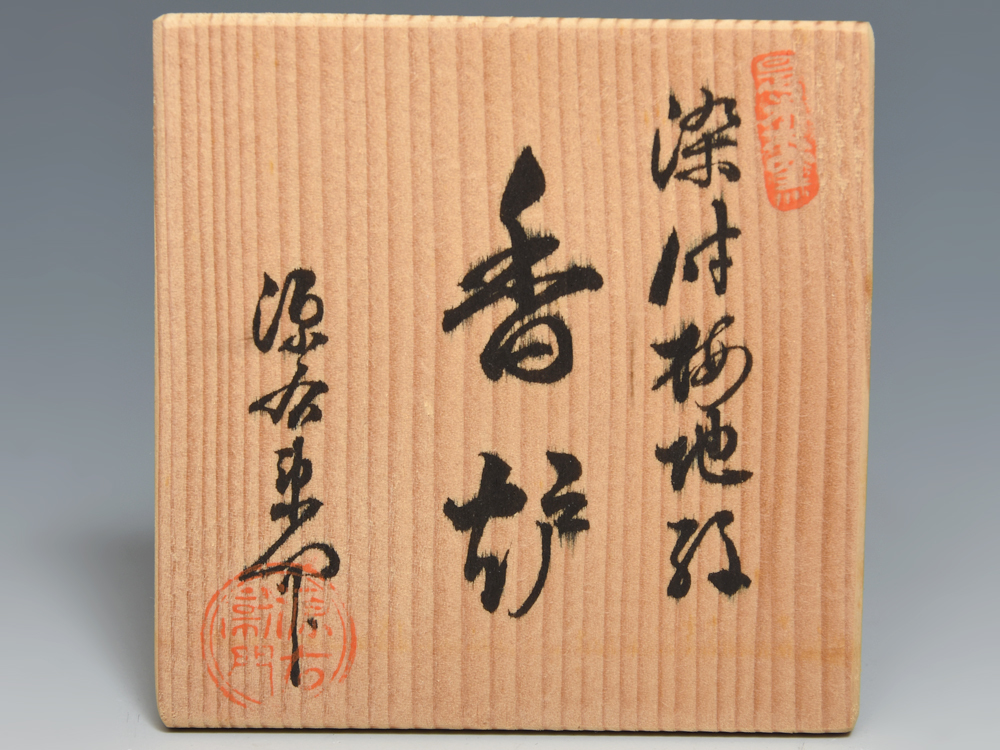 染付梅地紋
香炉
源右衛門
源右
衛門